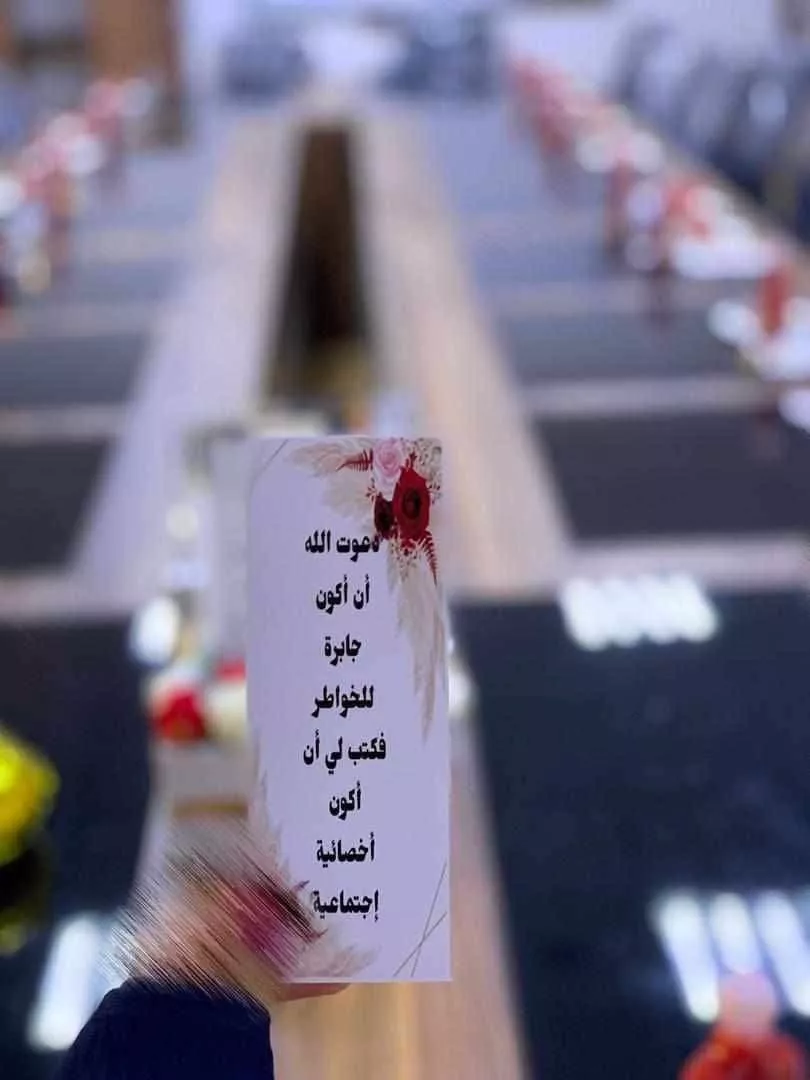 دعوت الله
أن أكون
جابرة
للخواطر
فكتب لي أن
أكون
أخصائية
إجتماعية